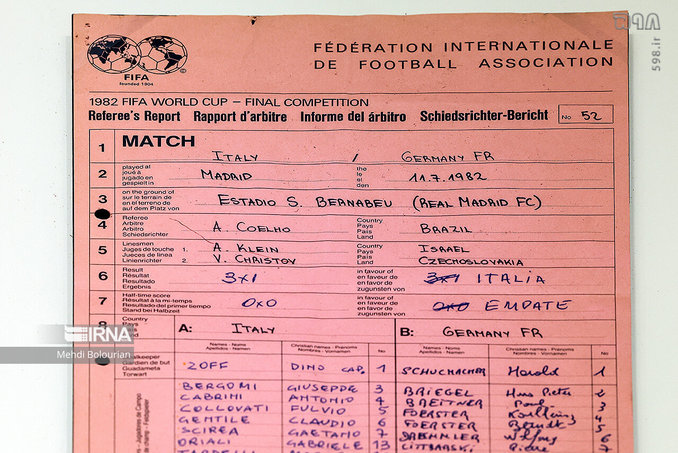 598
598.ir
FIFA
founded 1904
FÉDÉRATION INTERNATIONALE
DE FOOTBALL ASSOCIATION
1982 FIFA WORLD CUP – FINAL COMPETITION
Referee's Report Rapport d'arbitre Informe del árbitro Schiedsrichter-Bericht No 52
1 MATCH ITALY / GERMANY FR
2 played at joué à jugado en gespielt in MADRID the le el den 11.7.1982
3 on the ground of sur le terrain de en el terreno de auf dem Platz von ESTADIO S. BERNABEU (REAL MADRID FC)
4 Referee Arbitre Arbitro Schiedsrichter A. COELHO Country Pays País Land BRAZIL
5 Linesmen Juges de touche Jueces de línea Linienrichter 1. A. KLEIN Country Pays País Land ISRAEL
2. V. CHRISTOV CZECHOSLOVAKIA
6 Result Résultat Resultado Ergebnis 3x1 in favour of en faveur de en favor de zugunsten von 3x1 ITALIA
7 Half-time score Résultat à la mi-temps Resultado del primer tiempo Stand bei Halbzeit 0x0 in favour of en faveur de en favor de zugunsten von 0x0 EMPATE
8 Country Pays País A: ITALY B: GERMANY FR
IRNA
Mehdi Bolourian
Names - Noms Apellidos - Namen Christian names - Prénoms Nombres - Vornamen No Names - Noms Apellidos - Namen Christian names - Prénoms Nombres - Vornamen No
Gardien de but Guardameta Torwart ZOFF DINO CAP. 1 SCHUMACHER Harald 1
BERGOMI GIUSEPPE 3 BRIEGEL Hans Peter 2
CABRINI ANTONIO 4 BREITNER Paul 3
COLLOVATI FULVIO 5 FOERSTER Karlheinz 4
GENTILE CLAUDIO 6 FOERSTER Bernd 5
SCIREA GAETANO 7 6
ORIALI GABRIELE 13 LITTBARSKI Pierre 7